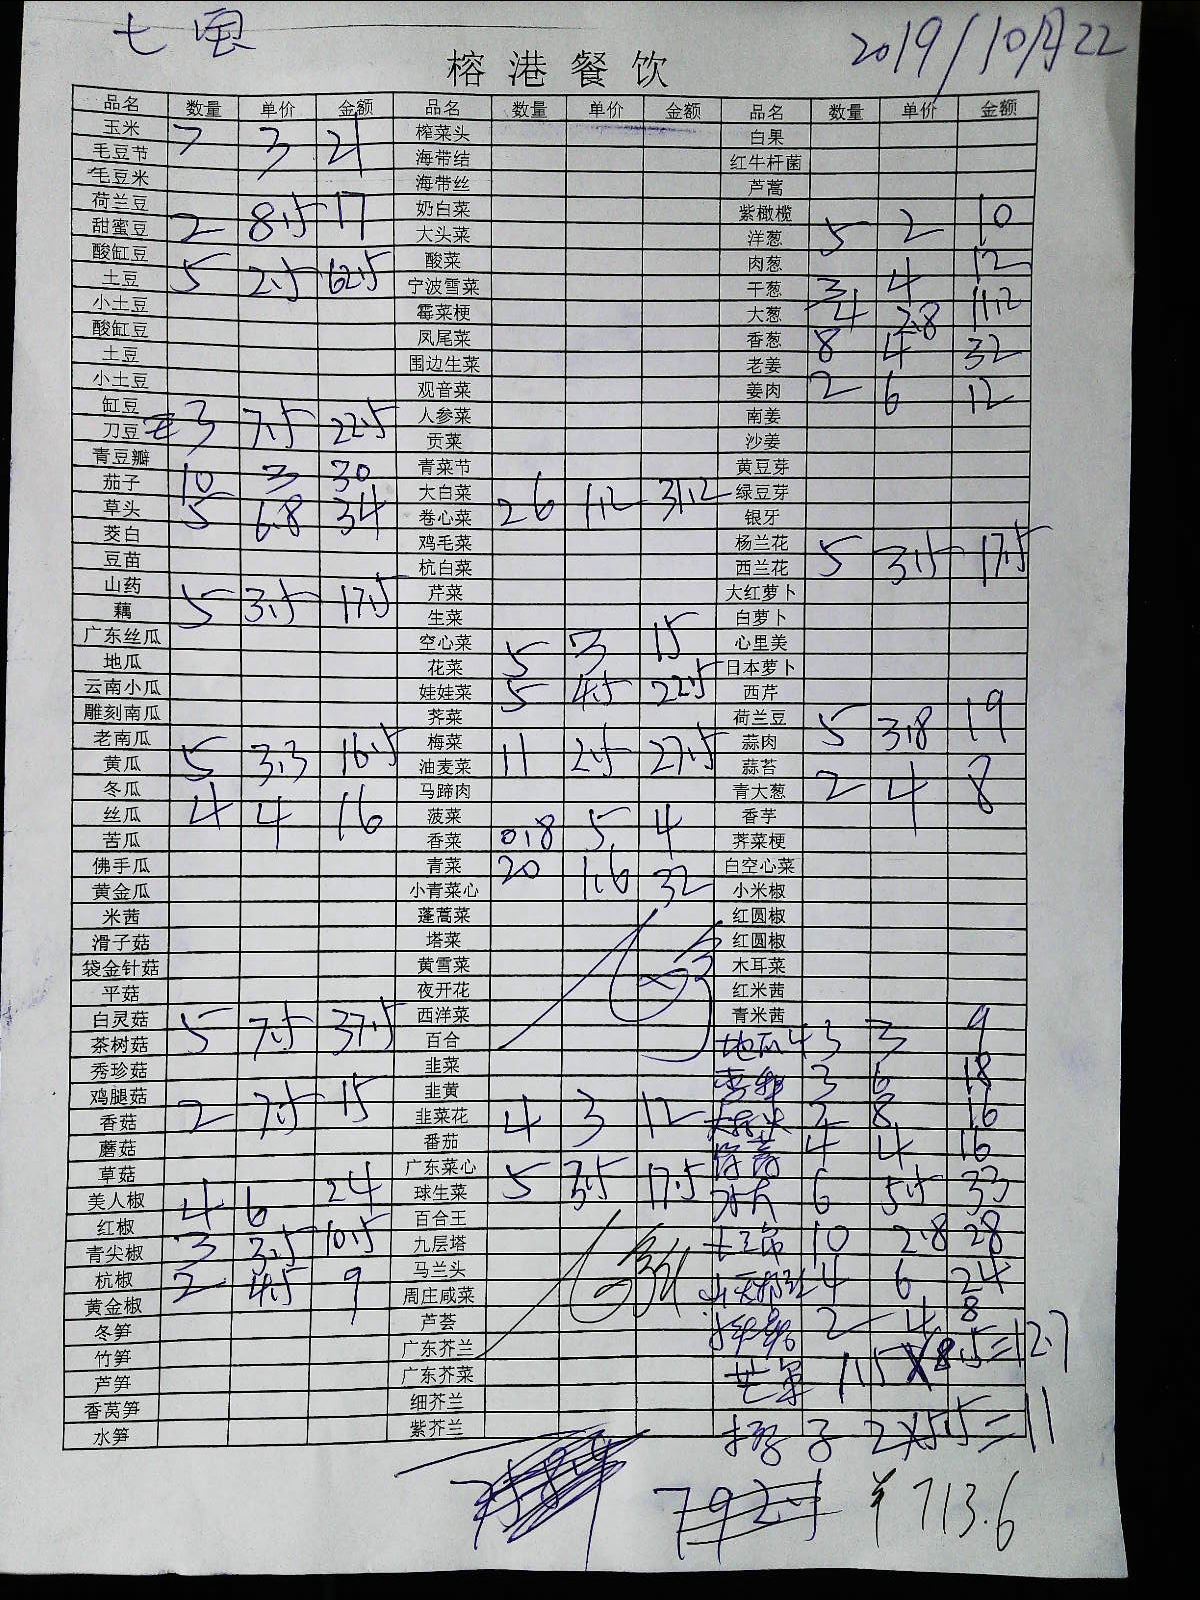 七
2019/10月22
榕港餐饮
品名 数量 单价 金额 品名 数量 单价 金额 品名 数量 单价 金额
玉米 7 3 21 榨菜头 白果
毛豆节 海带结 红牛杆菌
毛豆米 海带丝 芦蒿
荷兰豆 奶白菜 紫橄榄
甜蜜豆 2 8.5 17 大头菜 洋葱 5 2 10
酸缸豆 酸菜 肉葱
土豆 5 2.5 62.5 宁波雪菜 干葱 3 4 12
小土豆 霉菜梗 大葱 4 2.8 11.2
酸缸豆 凤尾菜 香葱 8 4 32
土豆 围边生菜 老姜
小土豆 观音菜 姜肉 2 6 12
缸豆 人参菜 南姜
刀豆 3 7.5 22.5 贡菜 沙姜
青豆瓣 青菜节 黄豆芽
茄子 10 3 30 大白菜 绿豆芽
草头 5 6.8 34 卷心菜 26 1.2 31.2 银牙
茭白 鸡毛菜 杨兰花
豆苗 杭白菜 西兰花 5 3.5 17.5
山药 芹菜 大红萝卜
藕 5 3.5 17.5 生菜 白萝卜
广东丝瓜 空心菜 心里美
地瓜 花菜 5 3 15 日本萝卜
云南小瓜 娃娃菜 5 4.5 22.5 西芹
雕刻南瓜 荠菜 荷兰豆
老南瓜 梅菜 蒜肉 5 3.8 19
黄瓜 5 3.3 16.5 油麦菜 11 2.5 27.5 蒜苔
冬瓜 马蹄肉 青大葱 2 4 8
丝瓜 4 4 16 菠菜 香芋
苦瓜 香菜 0.8 5 4 荠菜梗
佛手瓜 青菜 20 1.6 32 白空心菜
黄金瓜 小青菜心 小米椒
米茜 蓬蒿菜 红圆椒
滑子菇 塔菜 红圆椒
袋金针菇 黄雪菜 木耳菜
平菇 夜开花 红米茜
白灵菇 西洋菜 青米茜
茶树菇 5 7.5 37.5 百合 地瓜 3 3 9
秀珍菇 韭菜 3 6 18
鸡腿菇 韭黄 2 8 16
香菇 2 7.5 15 韭菜花 4 3 12 4 4 16
蘑菇 番茄 6 5.5 33
草菇 广东菜心 10 2.8 28
美人椒 4 6 24 球生菜 5 3.5 17.5 4 6 24
红椒 百合王 2 4 8
青尖椒 3 3.5 10.5 九层塔 芒果 1.5×8.5=12.7
杭椒 2 4.5 9 马兰头 子 2×5.5=11
黄金椒 周庄咸菜
冬笋 芦荟
竹笋 广东芥兰
芦笋 广东芥菜
香莴笋 细芥兰
水笋 紫芥兰
¥713.6